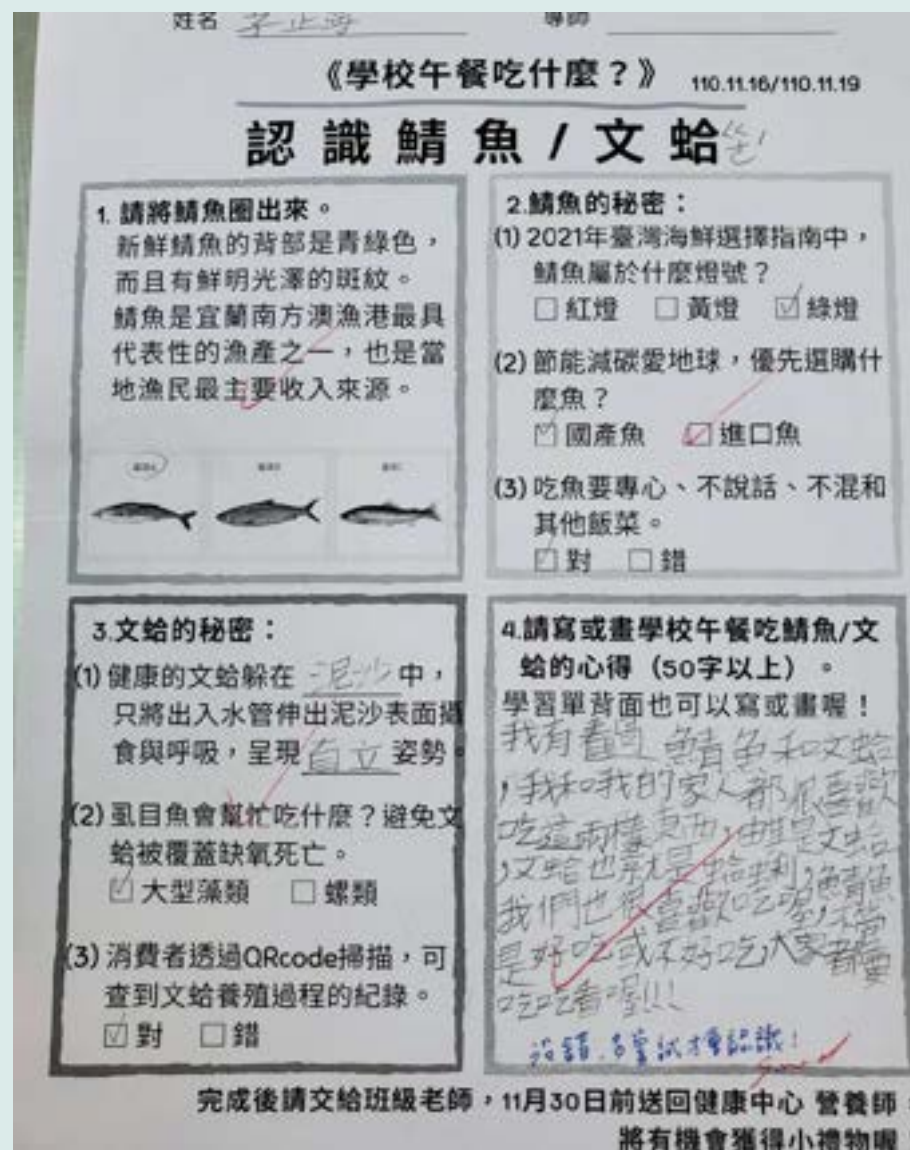 姓名
導師
《學校午餐吃什麼？》 110.11.16/110.11.19
認識鯖魚/文蛤
1. 請將鯖魚圈出來。
新鮮鯖魚的背部是青綠色，
而且有鮮明光澤的斑紋。
鯖魚是宜蘭南方澳漁港最具
代表性的漁產之一，也是當
地漁民最主要收入來源。
2.鯖魚的秘密：
(1) 2021年臺灣海鮮選擇指南中，
鯖魚屬於什麼燈號？
□紅燈 □黃燈 ☑綠燈
(2) 節能減碳愛地球，優先選購什
麼魚？
☑國產魚 □進口魚
(3) 吃魚要專心、不說話、不混和
其他飯菜。
☑對 □錯
3.文蛤的秘密：
(1) 健康的文蛤躲在 泥沙 中，
只將出入水管伸出泥沙表面攝
食與呼吸，呈現 直立 姿勢。
(2) 虱目魚會幫忙吃什麼？避免文
蛤被覆蓋缺氧死亡。
☑大型藻類 □螺類
(3) 消費者透過QRcode掃描，可
查到文蛤養殖過程的紀錄。
☑對 □錯
4.請寫或畫學校午餐吃鯖魚/文
蛤的心得（50字以上）。
學習單背面也可以寫或畫喔！
我有看過鯖魚和文蛤
，我和我的家人都很喜歡
吃這兩樣東西，是文蛤
，文蛤也就是蛤蜊，鯖魚
我們也很喜歡吃喔，不管
是好吃或不好吃，大家都要
吃吃看喔!!!
沒錯，嘗試才會認識！
完成後請交給班級老師，11月30日前送回健康中心 營養師，
將有機會獲得小禮物喔